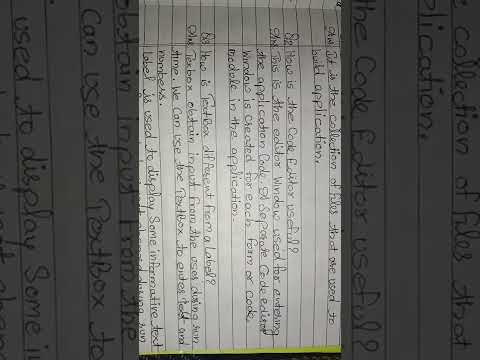 Ans It is the collection of files that are used to
build application.
Q2 How is the Code Editor useful?
Ans This is the editor window used for entering
the application Code. A Separate Code editor
window is created for each form or code
module in the application.
Q3 How is TextBox different from a Label?
Ans Texbox obtain input from the user during run
time. We Can use the TextBox to enter Text and
numbers.
Label is used to display Some informative text